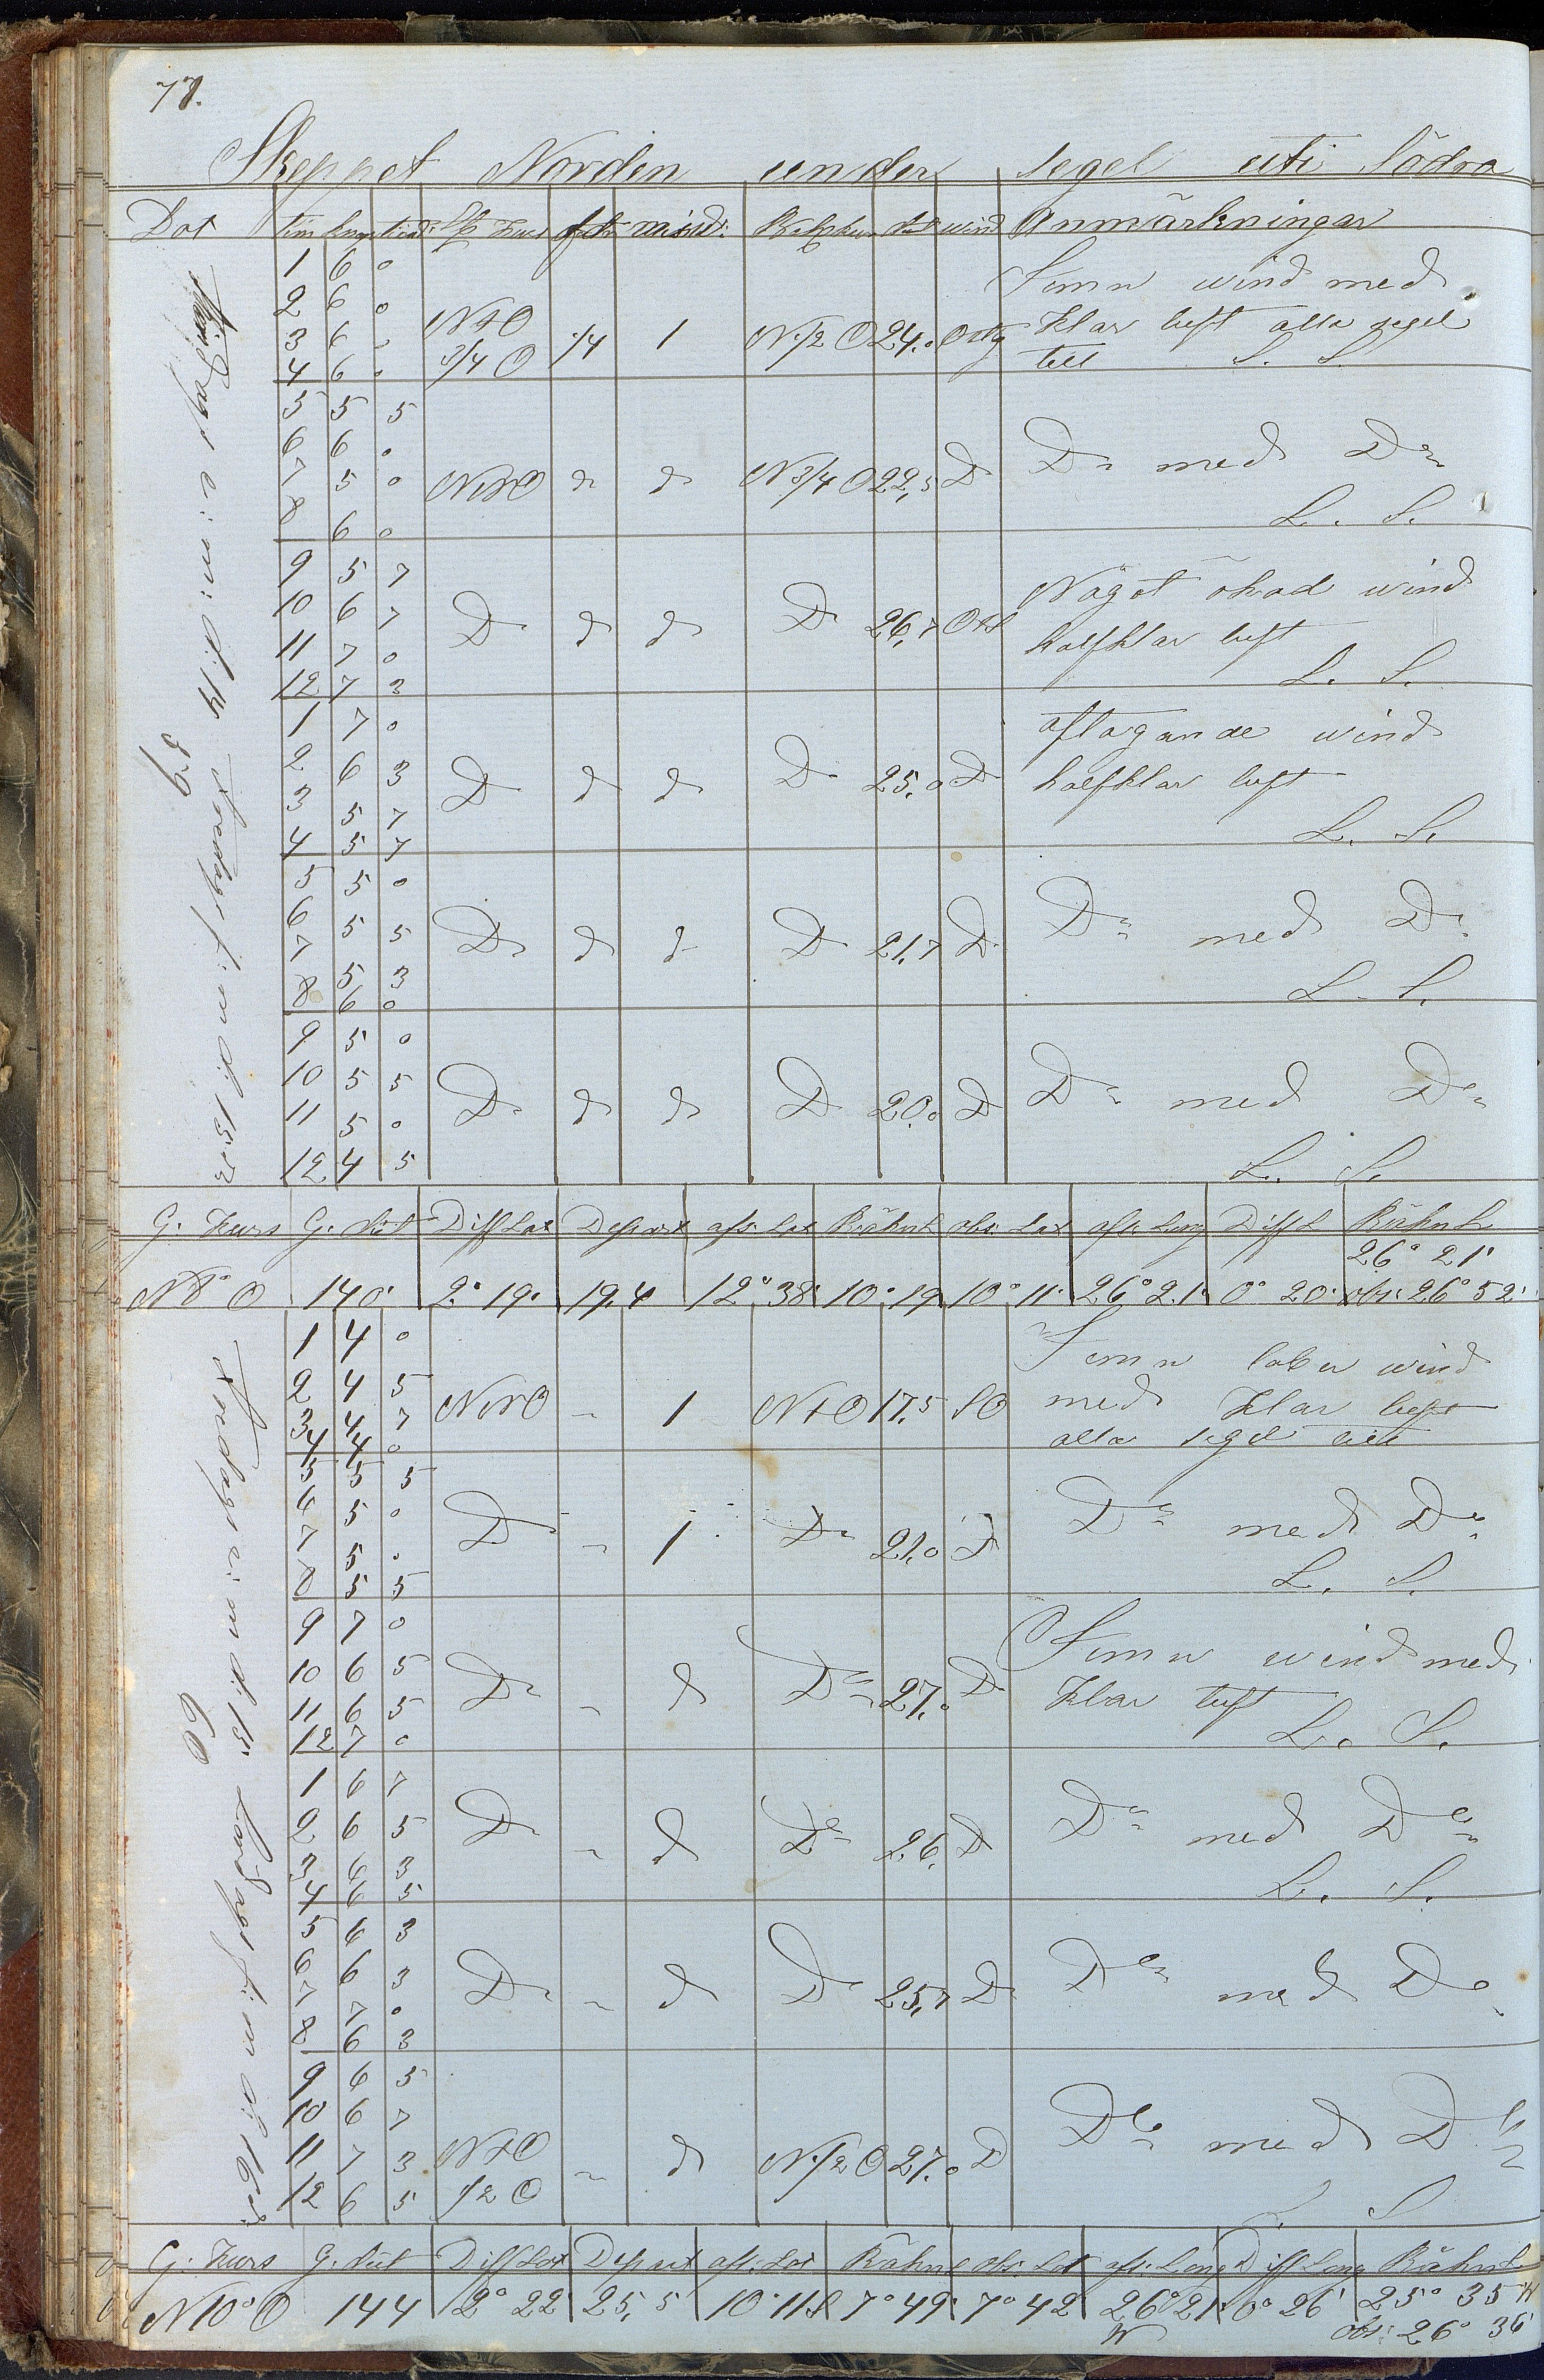 77.
Skeppet Norden under segel uti Södra
Dat tim knop tiend: Stp Kurs afdr misv: Beh: kurs dist wind Anmärkningar
Måndag e: m: d: 14
Torsdag f: m d: 15
59
1 6 0
2 6 0
3 6 0
4 6 0
NtO 3/4 O 1/4 1 N 1/2 O 24.0 Ostlig
Jemn wind med
klar luft alla segel
till L. S.
5 5 5
6 6 0
7 5 0
8 6 0
NNO d d N 3/4 O 22,5 D
Do med Do
L. S.
9 5 7
10 6 7
11 7 0
12 7 3
Do d d Do 26,7 OtS
Något ökad wind
halfklar luft
L. S.
1 7 0
2 6 3
3 5 7
4 5 7
Do d d Do 25,0 D
aftagande wind
halfklar luft
L. S.
5 5 0
6 5 5
7 5 3
8 6 0
Do d d Do 21,7 D
Do med Do
L. S.
9 5 0
10 5 5
11 5 0
12 4 5
Do d d Do 20,0 D
Do med Do
L. S.
G. Kurs G. dist Diff Lat Depart afs: Lat Bäknl obs: Lat afs: Long Diff L Bäknl
26° 21'
N 8° O 140' 2° 19' 19,4 12° 38' 10° 19 10° 11' 26° 21' 0° 20' obs: 26° 52'
Torsdag e: m d: 15
60
1 4 0
2 4 5
3 4 7
4 4 0
NNO 1 NtO 17,5 SO
Jemn laber wind
med klar luft
alla segel till
5 5 5
6 5 0
7 5 0
8 5 5
Do 1 Do 21,0 D
Do med Do
L. S.
9 7 0
10 6 5
11 6 5
12 7 0
Do d Do 27,0 D
Jemn wind med
klar luft
L. S.
1 6 7
2 6 5
3 6 3
4 6 5
Do d Do 26, D
Do med Do
L. S.
5 6 3
6 6 3
7 7 0
8 6 3
Do d Do 25,7 D
Do med Do
9 6 5
10 6 7
11 7 3
12 6 5
NtO 1/2 O d N 1/2 O 27,0 D
Do med Do
S
G. Kurs G. dist Diff Lat Depart afs: Lat Bäknl obs: Lat afs: Long Diff Long Bäknl
N 10° O 144 2° 22' 25,5 10° 11 S 7° 49' 7° 42 26° 21' W 0° 26' 25° 35 W
obs: 26° 36'